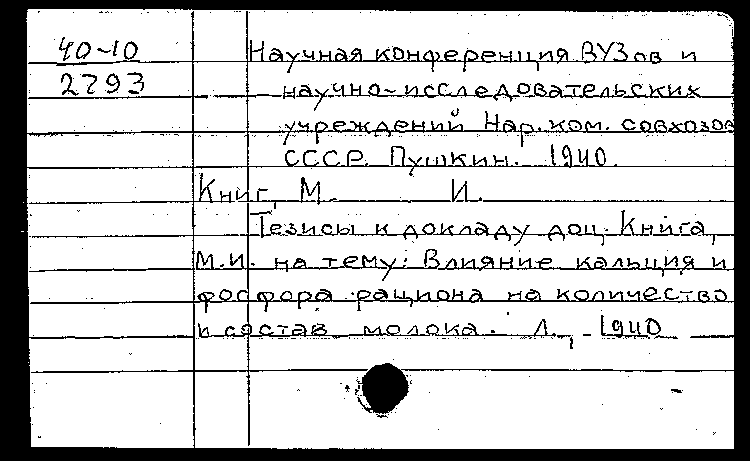 40-10
2793
Научная конференция ВУЗов и
научно-исследовательских
учреждений Нар.ком. совхозов
СССР. Пушкин. 1940.
Книг, М. И.
Тезисы к докладу доц. Книга,
М.И. на тему: Влияние кальция и
фосфора рациона на количество
и состав молока. Л., 1940